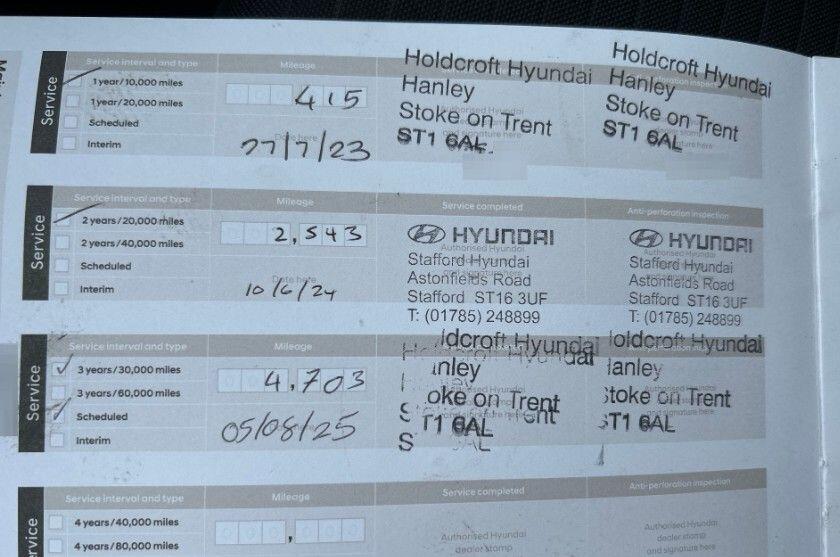 Service
Service interval and type
Mileage
1 year/10,000 miles
1 year/20,000 miles
Scheduled
Interim
415
Date here
27/7/23
Holdcroft Hyundai
Hanley
Stoke on Trent
ST1 6AL
Holdcroft Hyundai
Hanley
Stoke on Trent
ST1 6AL
Service
Service interval and type
Mileage
Service completed
Anti-perforation inspection
2 years/20,000 miles
2 years/40,000 miles
Scheduled
Interim
2,543
Date here
10/6/24
HYUNDAI
Authorised Hyundai
Stafford Hyundai
Astonfields Road
Stafford ST16 3UF
T: (01785) 248899
HYUNDAI
Authorised Hyundai
Stafford Hyundai
Astonfields Road
Stafford ST16 3UF
T: (01785) 248899
Service
Service interval and type
Mileage
3 years/30,000 miles
3 years/60,000 miles
Scheduled
Interim
4,703
05/08/25
ldcroft Hyundai
nley
oke on Trent
T1 6AL
oldcroft Hyundai
anley
toke on Trent
ST1 6AL
Service interval and type
Mileage
Service completed
Anti-perforation inspection
4 years/40,000 miles
4 years/80,000 miles
Authorised Hyundai
dealer stamp
and signature here
Authorised Hyundai
dealer stamp
and signature here